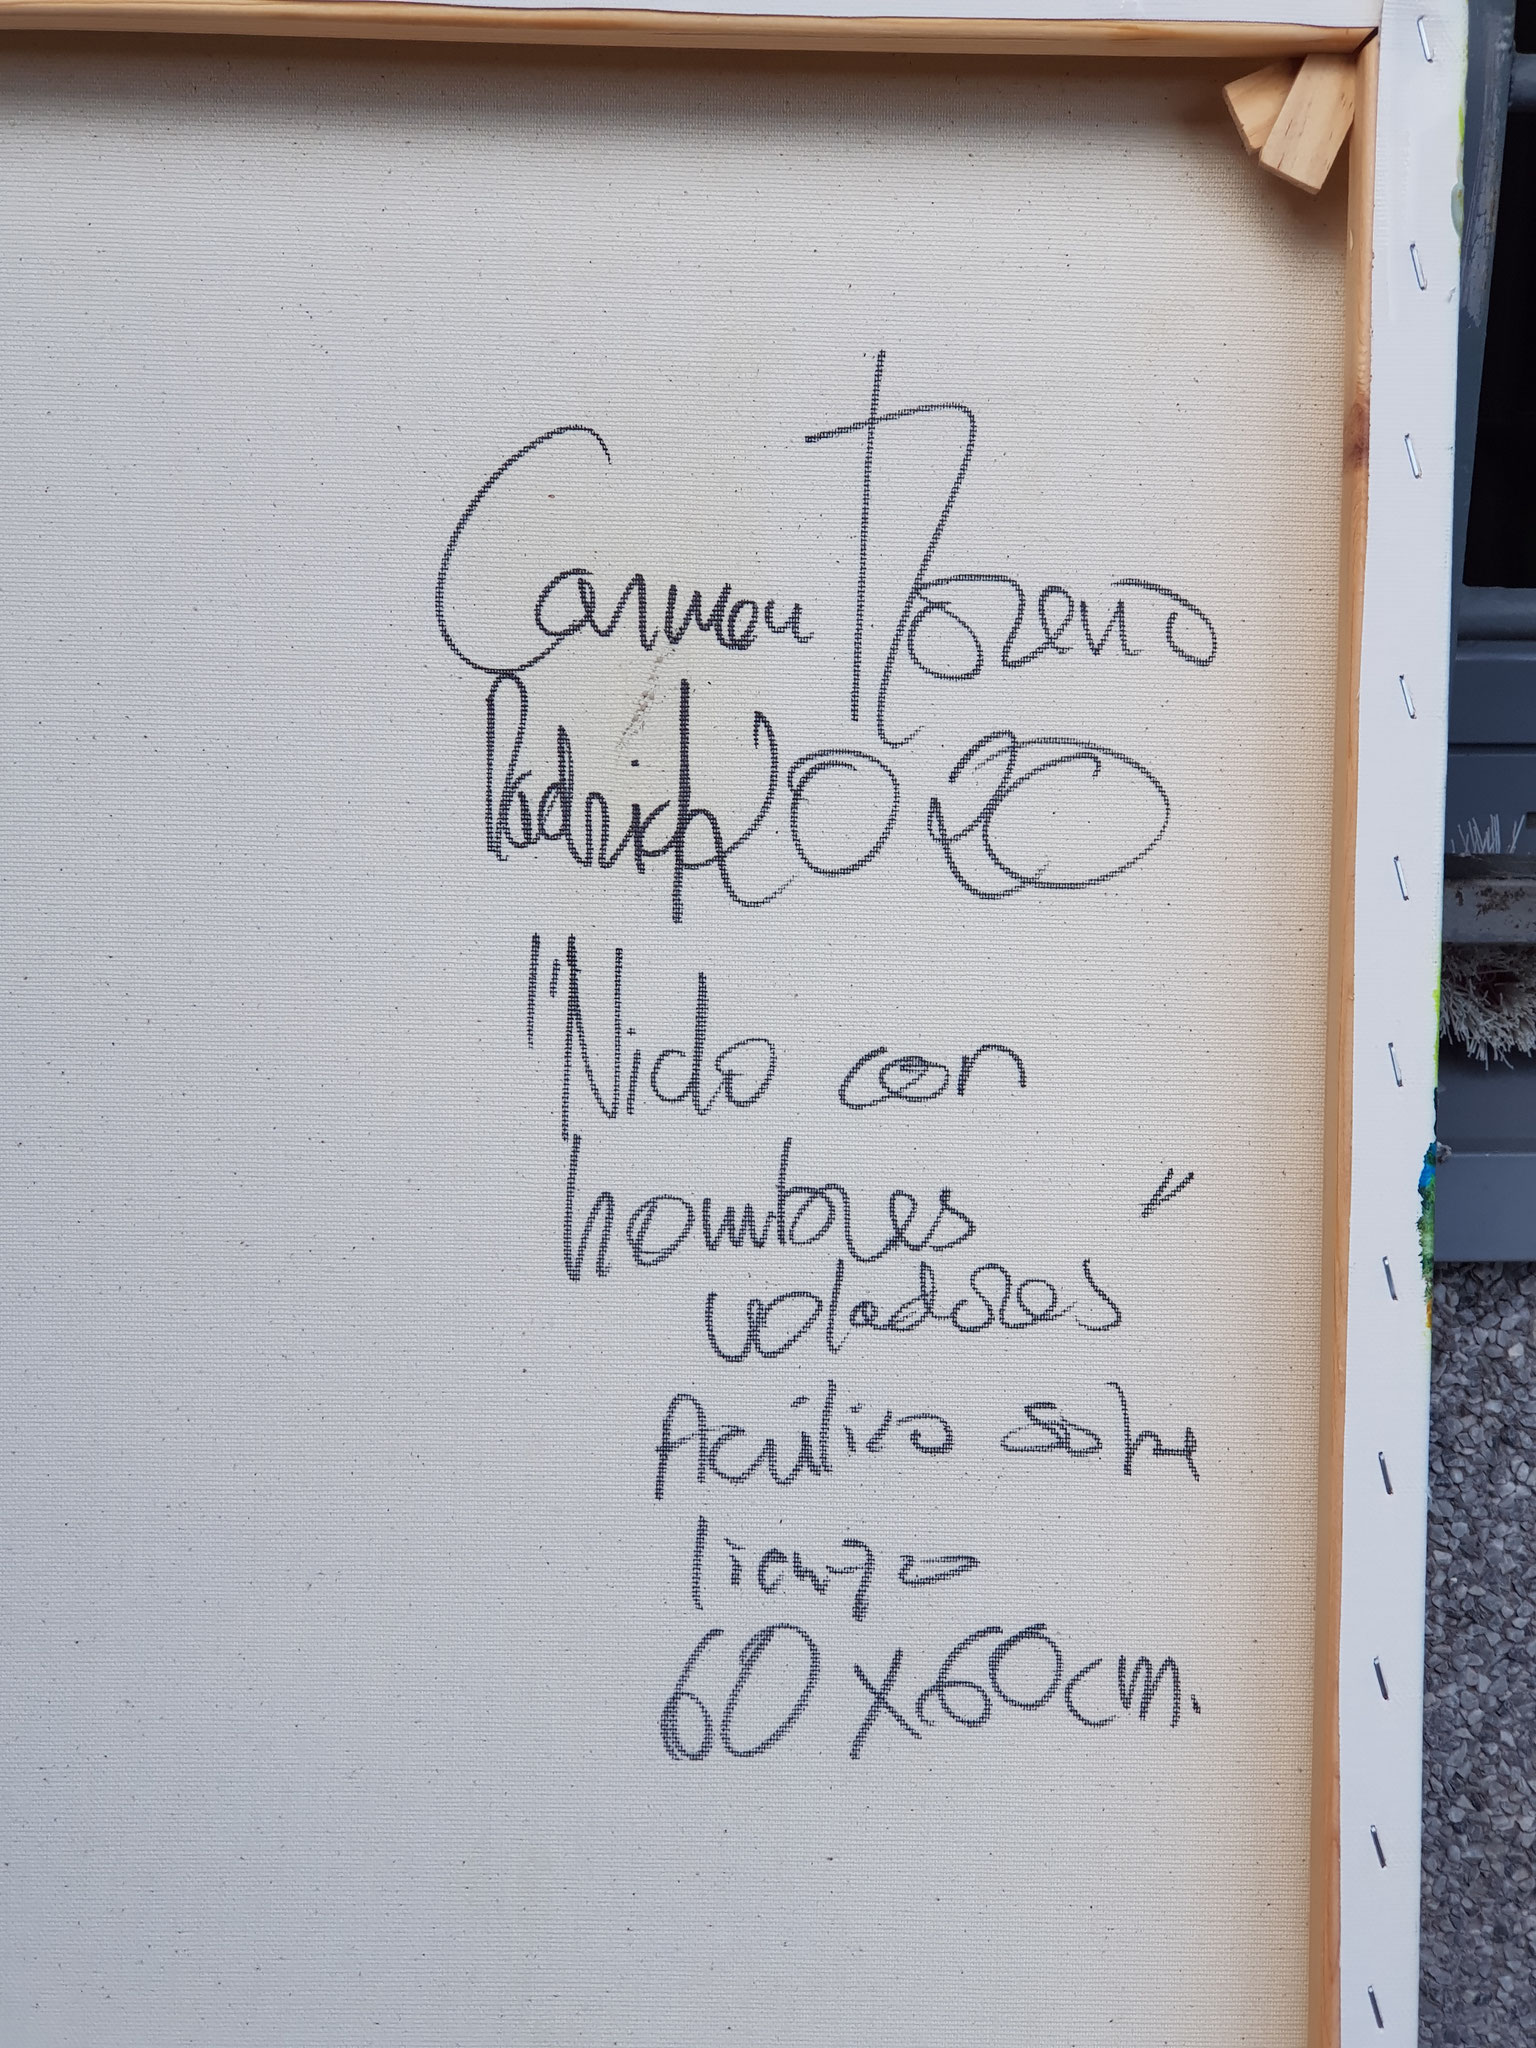 Carmen Moreno
"Nido con
hombres "
voladores
Acrílico sobre
lienzo
60 x 60 cm.